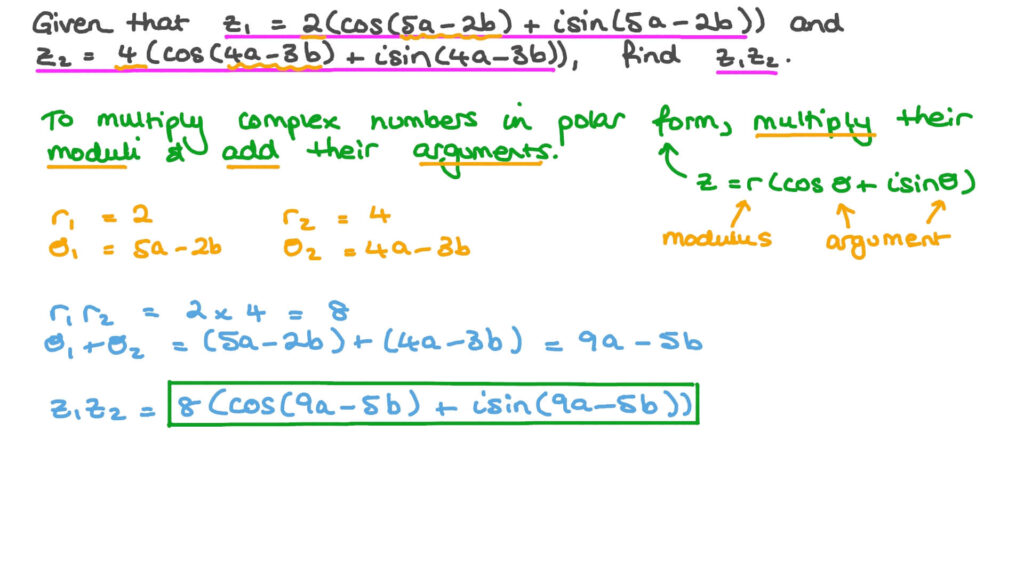 Given that z₁ = 2(cos(5a-2b) + isin(5a-2b)) and
z₂ = 4(cos(4a-3b) + isin(4a-3b)), find z₁z₂.
To multiply complex numbers in polar form, multiply their
moduli & add their arguments.
z = r(cos θ + isinθ)
modulus argument
r₁ = 2 r₂ = 4
θ₁ = 5a-2b θ₂ = 4a-3b
r₁r₂ = 2 × 4 = 8
θ₁+θ₂ = (5a-2b)+(4a-3b) = 9a-5b
z₁z₂ = 8(cos(9a-5b) + isin(9a-5b))